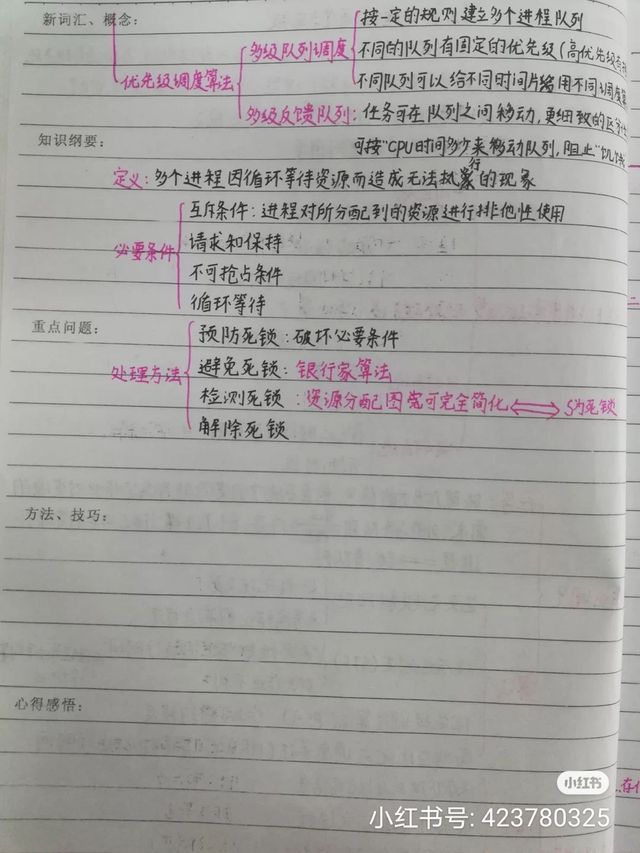 新词汇、概念：
按一定的规则建立多个进程队列
多级队列调度
不同的队列有固定的优先级(高优先级有
优先级调度算法
不同队列可以给不同时间片给用不同调度
多级反馈队列：任务可在队列之间移动，更细致的区分
知识纲要：
可按"CPU时间多少来移动队列，阻止"饥
定义：多个进程因循环等待资源而造成无法执行的现象
互斥条件：进程对所分配到的资源进行排他性使用
请求和保持
必要条件
不可抢占条件
循环等待
重点问题：
预防死锁：破坏必要条件
避免死锁：银行家算法
处理方法
检测死锁：资源分配图完可完全简化⟺S为死锁
解除死锁
方法、技巧：
心得感悟：
小红书
小红书号：423780325